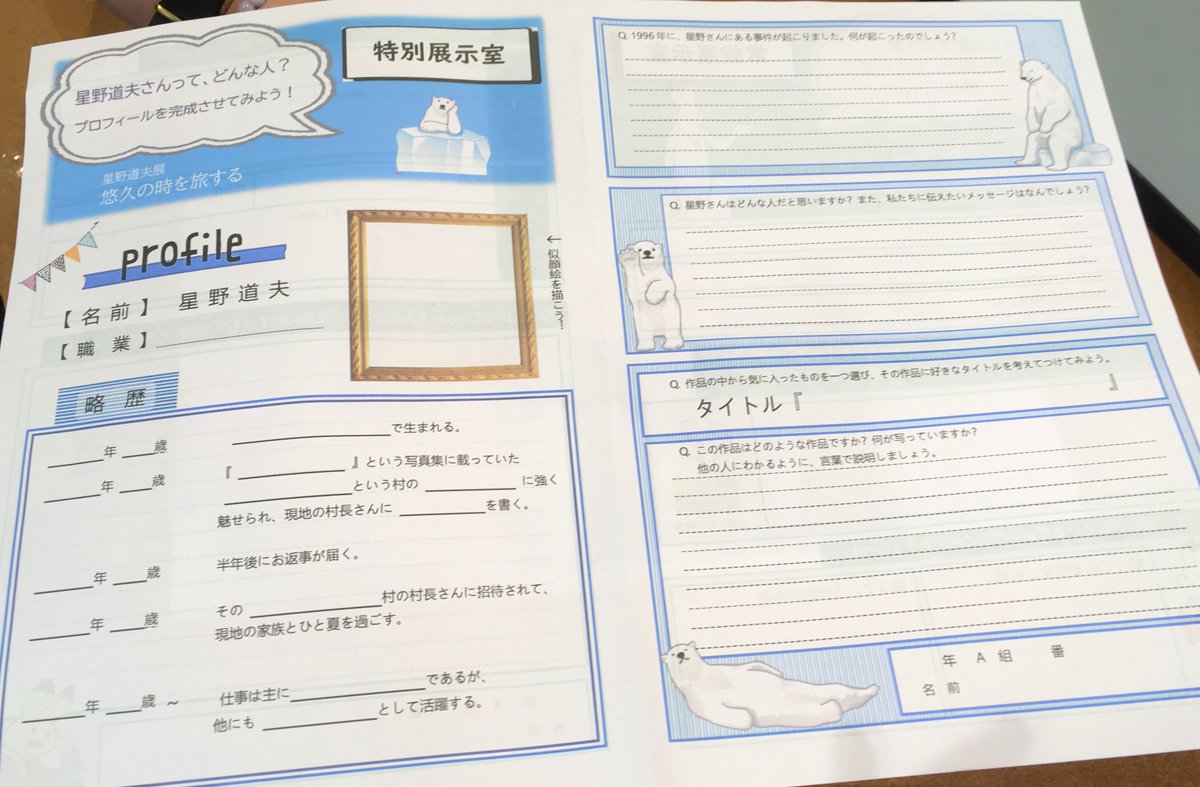 星野道夫さんって、どんな人？
プロフィールを完成させてみよう！
特別展示室
星野道夫展
悠久の時を旅する
profile
【名前】 星野道夫
【職業】
←似顔絵を描こう！
略歴
年 歳 で生まれる。
年 歳 『 』という写真集に載っていた
という村の に強く
魅せられ、現地の村長さんに を書く。
年 歳 半年後にお返事が届く。
年 歳 その 村の村長さんに招待されて、
現地の家族とひと夏を過ごす。
年 歳 ～ 仕事は主に であるが、
他にも として活躍する。
Q. 1996年に、星野さんにある事件が起こりました。何が起こったのでしょう？
Q. 星野さんはどんな人だと思いますか？また、私たちに伝えたいメッセージはなんでしょう？
Q. 作品の中から気に入ったものを一つ選び、その作品に好きなタイトルを考えてつけてみよう。
タイトル『 』
Q. この作品はどのような作品ですか？何が写っていますか？
他の人にわかるように、言葉で説明しましょう。
年 A 組 番
名前